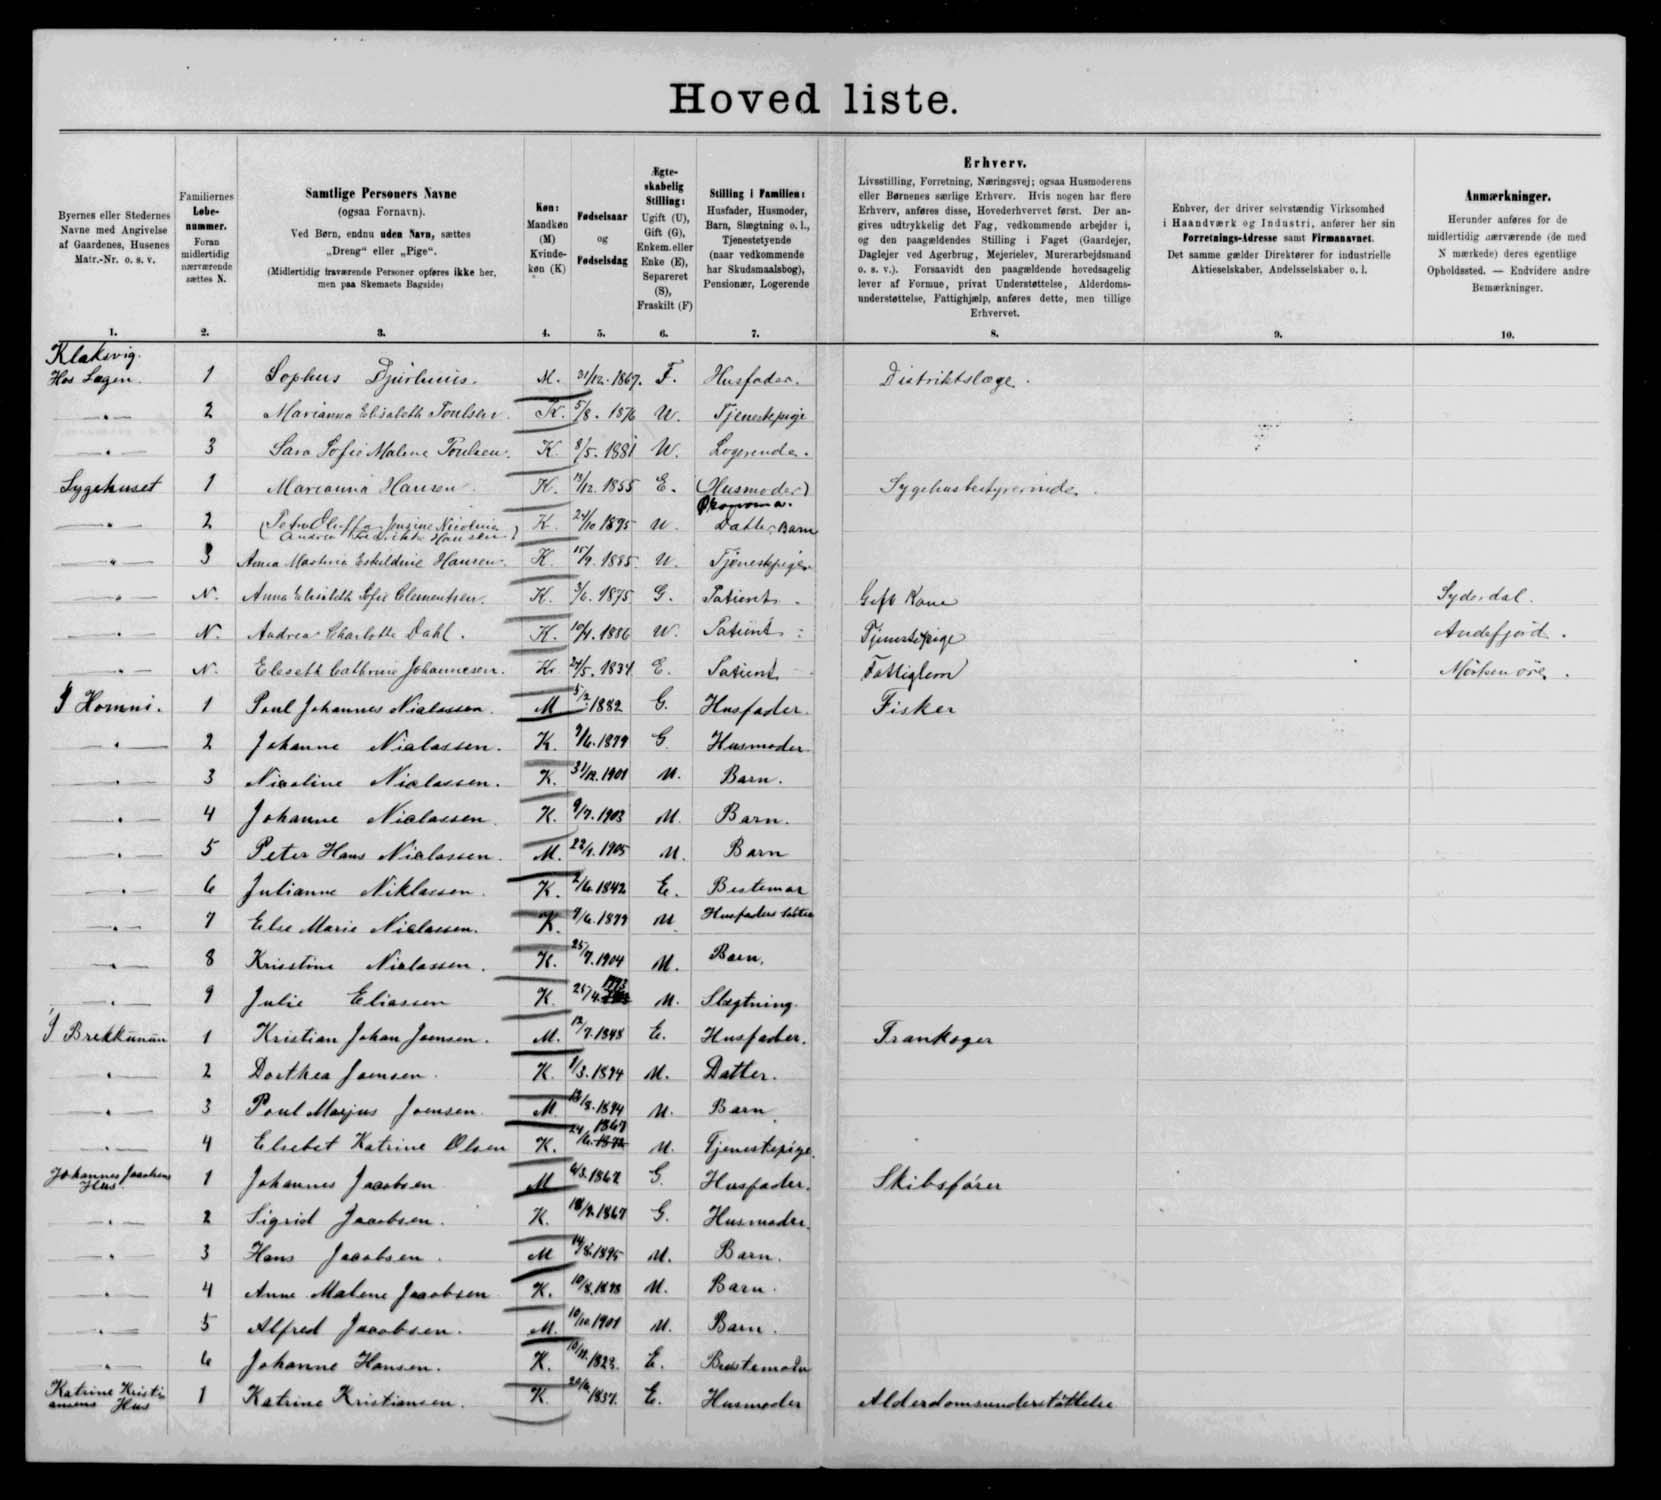 Hoved liste.
Byernes eller Stedernes
Navne med Angivelse
af Gaardenes, Husenes
Matr.-Nr. o. s. v.
1.
Familiernes
Løbe-
nummer.
Foran
midlertidig
nærværende
sættes N.
2.
Samtlige Personers Navne
(ogsaa Fornavn).
Ved Børn, endnu uden Navn, sættes
„Dreng“ eller „Pige“.
(Midlertidig fraværende Personer opføres ikke her,
men paa Skemaets Bagside)
3.
Køn:
Mandkøn
(M)
Kvinde-
køn (K)
4.
Fødselsaar
og
Fødselsdag
5.
Ægte-
skabelig
Stilling:
Ugift (U),
Gift (G),
Enkem. eller
Enke (E),
Separeret
(S),
Fraskilt (F)
6.
Stilling i Familien:
Husfader, Husmoder,
Barn, Slægtning o. l.,
Tjenestetyende
(naar vedkommende
har Skudsmaalsbog),
Pensionær, Logerende
7.
Erhverv.
Livsstilling, Forretning, Næringsvej; ogsaa Husmoderens
eller Børnenes særlige Erhverv. Hvis nogen har flere
Erhverv, anføres disse, Hovederhvervet først. Der an-
gives udtrykkelig det Fag, vedkommende arbejder i,
og den paagældendes Stilling i Faget (Gaardejer,
Daglejer ved Agerbrug, Mejerielev, Murerarbejdsmand
o. s. v.). Forsaavidt den paagældende hovedsagelig
lever af Formue, privat Understøttelse, Alderdoms-
understøttelse, Fattighjælp, anføres dette, men tillige
Erhvervet.
8.
Enhver, der driver selvstændig Virksomhed
i Haandværk og Industri, anfører her sin
Forretnings-Adresse samt Firmanavnet.
Det samme gælder Direktører for industrielle
Aktieselskaber, Andelsselskaber o. l.
9.
Anmærkninger.
Herunder anføres for de
midlertidig nærværende (de med
N mærkede) deres egentlige
Opholdssted. — Endvidere andre
Bemærkninger.
10.
Klaksvig.
Hos Lægen. 1 Sophus Djurhuus. M. 21/12. 1867. F. Husfader. Distriktslæge.
— " — 2 Marianna Elisabeth Poulsen. K. 5/8. 1876 U. Tjenestepige
— " — 3 Sara Sofie Malene Poulsen. K. 8/5. 1881 U. Logerende.
Sygehuset 1 Marianna Hansen. K. /12. 1855 E. (Husmoder) Økonoma. Sygehusbestyrerinde.
— " — 2 (Petra Oluffa Jensine Nicolina
Andrea Fredrikke Hansen) K. 24/10 1895 U. Datter Barn
— " — 3 Anna Mastina Eskildine Hansen. K. 15/9. 1885. U. Tjenestepige
— " — N. Anna Elisabeth Sofie Clementsen. K. 3/6. 1875 G. Patient. Gift Kone Syderdal.
— " — N. Andrea Charlotte Dahl. K. 10/4. 1886 U. Patient Tjenestepige Andefjord.
— " — N. Eleseth Cathrine Johannesen. K. 24/5. 1834 E. Patient Fattiglem
I Homni. 1 Poul Johannes Niclassen. M 5/2. 1882 G. Husfader. Fisker
— " — 2 Johanne Niclassen. K. 9/6. 1879 G. Husmoder
— " — 3 Nicoline Niclassen. K. 31/12. 1901 U. Barn.
— " — 4 Johanne Niclassen K. 9/7. 1903 U. Barn.
— " — 5 Peter Hans Niclassen. M. 22/1. 1905 U. Barn
— " — 6 Julianne Niklassen. K. 2/6. 1842 E. Bestemor
— " — 7 Else Marie Niclassen. K. 9/6. 1879 U Husfaders Søster
— " — 8 Krisstine Niclassen. K. 25/7. 1904 U. Barn.
— " — 9 Julie Eliassen K. 25/4. U. Slægtning.
I Brekkunun 1 Kristian Johan Joensen. M. 12/7. 1848 E. Husfader. Trankoger
— " — 2 Dorthea Joensen. K. 1/3. 1874 U. Datter.
— " — 3 Poul Marjus Joensen. M 18/8. 1894 U. Barn
— " — 4 Elsebet Katrine Olsen K. 24/6. 1867 U. Tjenestepige.
Johannes Jacobsens
Hus. 1 Johannes Jacobsen M 6/3. 1862 G. Husfader. Skibsfører
— " — 2 Sigrid Jacobsen. K. 18/9. 1867 G. Husmoder.
— " — 3 Hans Jacobsen. M 14/8. 1895 U. Barn.
— " — 4 Anne Malene Jacobsen K. 10/8. 1898 U. Barn.
— " — 5 Alfred Jacobsen. M. 10/10. 1901 U. Barn.
— " — 6 Johanne Hansen. K. 1823. E. Bestemoder
Katrine Kristi-
ansens Hus 1 Katrine Kristiansen. K. 1837. E. Husmoder Alderdomsunderstøttelse